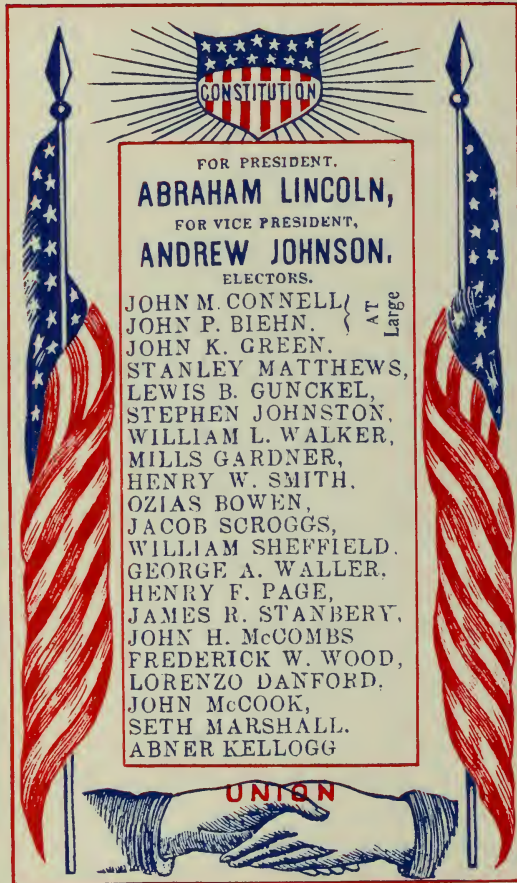 CONSTITUTION
FOR PRESIDENT.
ABRAHAM LINCOLN,
FOR VICE PRESIDENT,
ANDREW JOHNSON.
ELECTORS.
JOHN M. CONNELL
JOHN P. BIEHN.
AT Large
JOHN K. GREEN.
STANLEY MATTHEWS,
LEWIS B. GUNCKEL,
STEPHEN JOHNSTON,
WILLIAM L. WALKER,
MILLS GARDNER,
HENRY W. SMITH.
OZIAS BOWEN,
JACOB SCROGGS,
WILLIAM SHEFFIELD.
GEORGE A. WALLER,
HENRY F. PAGE,
JAMES R. STANBERY,
JOHN H. McCOMBS
FREDERICK W. WOOD,
LORENZO DANFORD,
JOHN McCOOK,
SETH MARSHALL.
ABNER KELLOGG
UNION